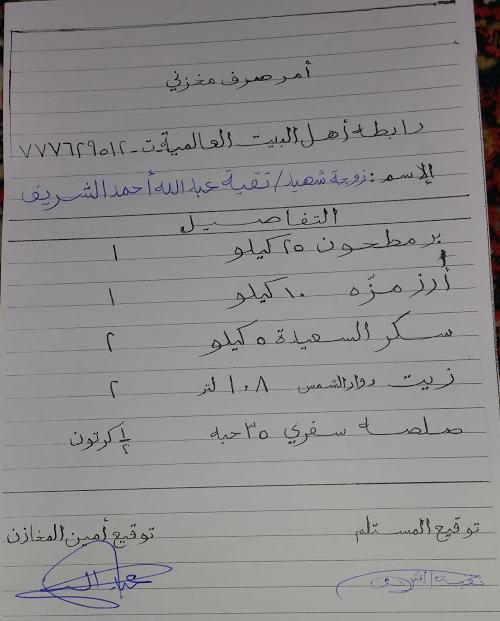 أمر صرف مخزني
رابطه أهل البيت العالمية ت - ٧٧٧٦٢٩٥١٢
الإسم : زوجة شهيد / تقية عبدالله أحمد الشريف
التفاصيل
بر مطحون ٢٥ كيلو ١
أرز مزّه ١٠ كيلو ١
سكر السعيدة ٥ كيلو ٢
زيت دوار الشمس ١،٨ لتر ٢
صلصه سفري ٣٥ حبه ١/٢ كرتون
توقيع المستلم توقيع أمين المخازن
تقية الشريف